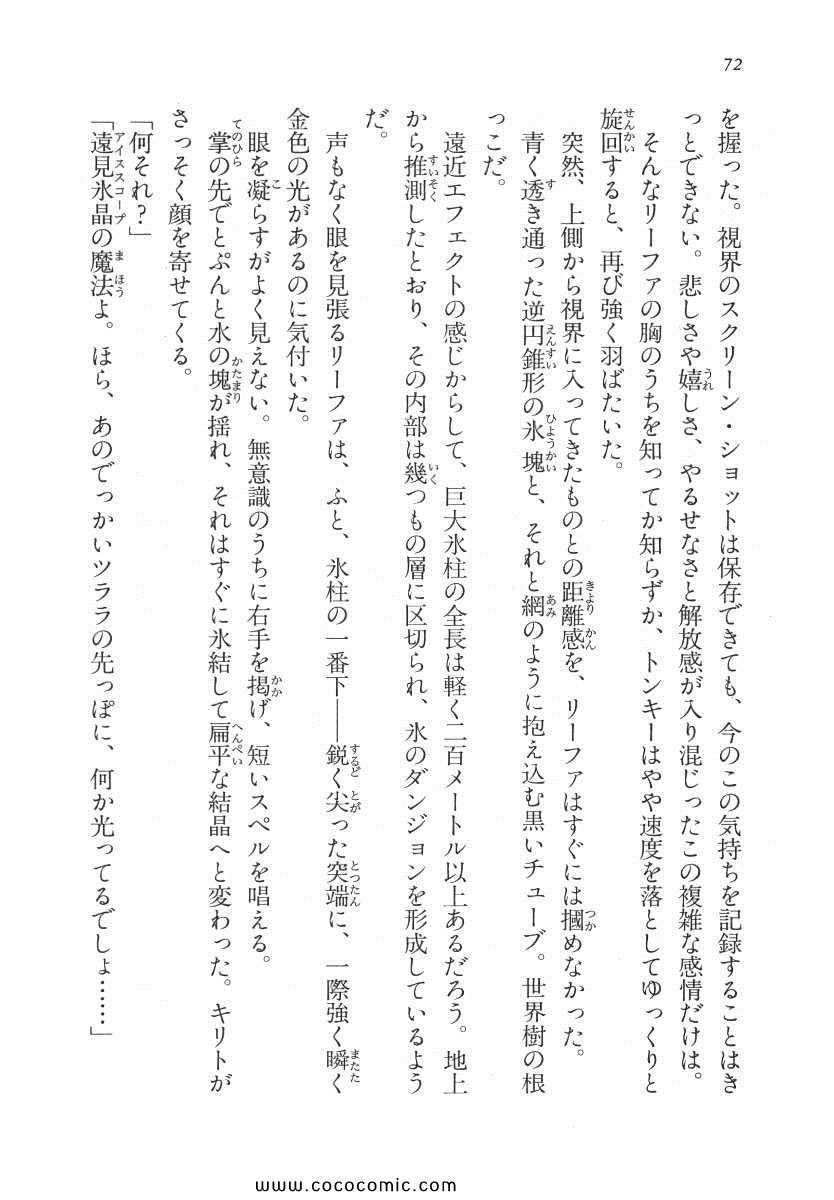 72
を握った。視界のスクリーン・ショットは保存できても、今のこの気持ちを記録することはき
っとできない。悲しさや嬉しさ、やるせなさと解放感が入り混じったこの複雑な感情だけは。
そんなリーファの胸のうちを知ってか知らずか、トンキーはやや速度を落としてゆっくりと
旋回すると、再び強く羽ばたいた。
突然、上側から視界に入ってきたものとの距離感を、リーファはすぐには摑めなかった。
青く透き通った逆円錐形の氷塊と、それと網のように抱え込む黒いチューブ。世界樹の根
っこだ。
遠近エフェクトの感じからして、巨大氷柱の全長は軽く二百メートル以上あるだろう。地上
から推測したとおり、その内部は幾つもの層に区切られ、氷のダンジョンを形成しているよう
だ。
声もなく眼を見張るリーファは、ふと、氷柱の一番下――鋭く尖った突端に、一際強く瞬く
金色の光があるのに気付いた。
眼を凝らすがよく見えない。無意識のうちに右手を掲げ、短いスペルを唱える。
掌の先でとぷんと水の塊が揺れ、それはすぐに氷結して扁平な結晶へと変わった。キリトが
さっそく顔を寄せてくる。
「何それ?」
「遠見氷晶の魔法よ。ほら、あのでっかいツララの先っぽに、何か光ってるでしょ……」
www.cococomic.com